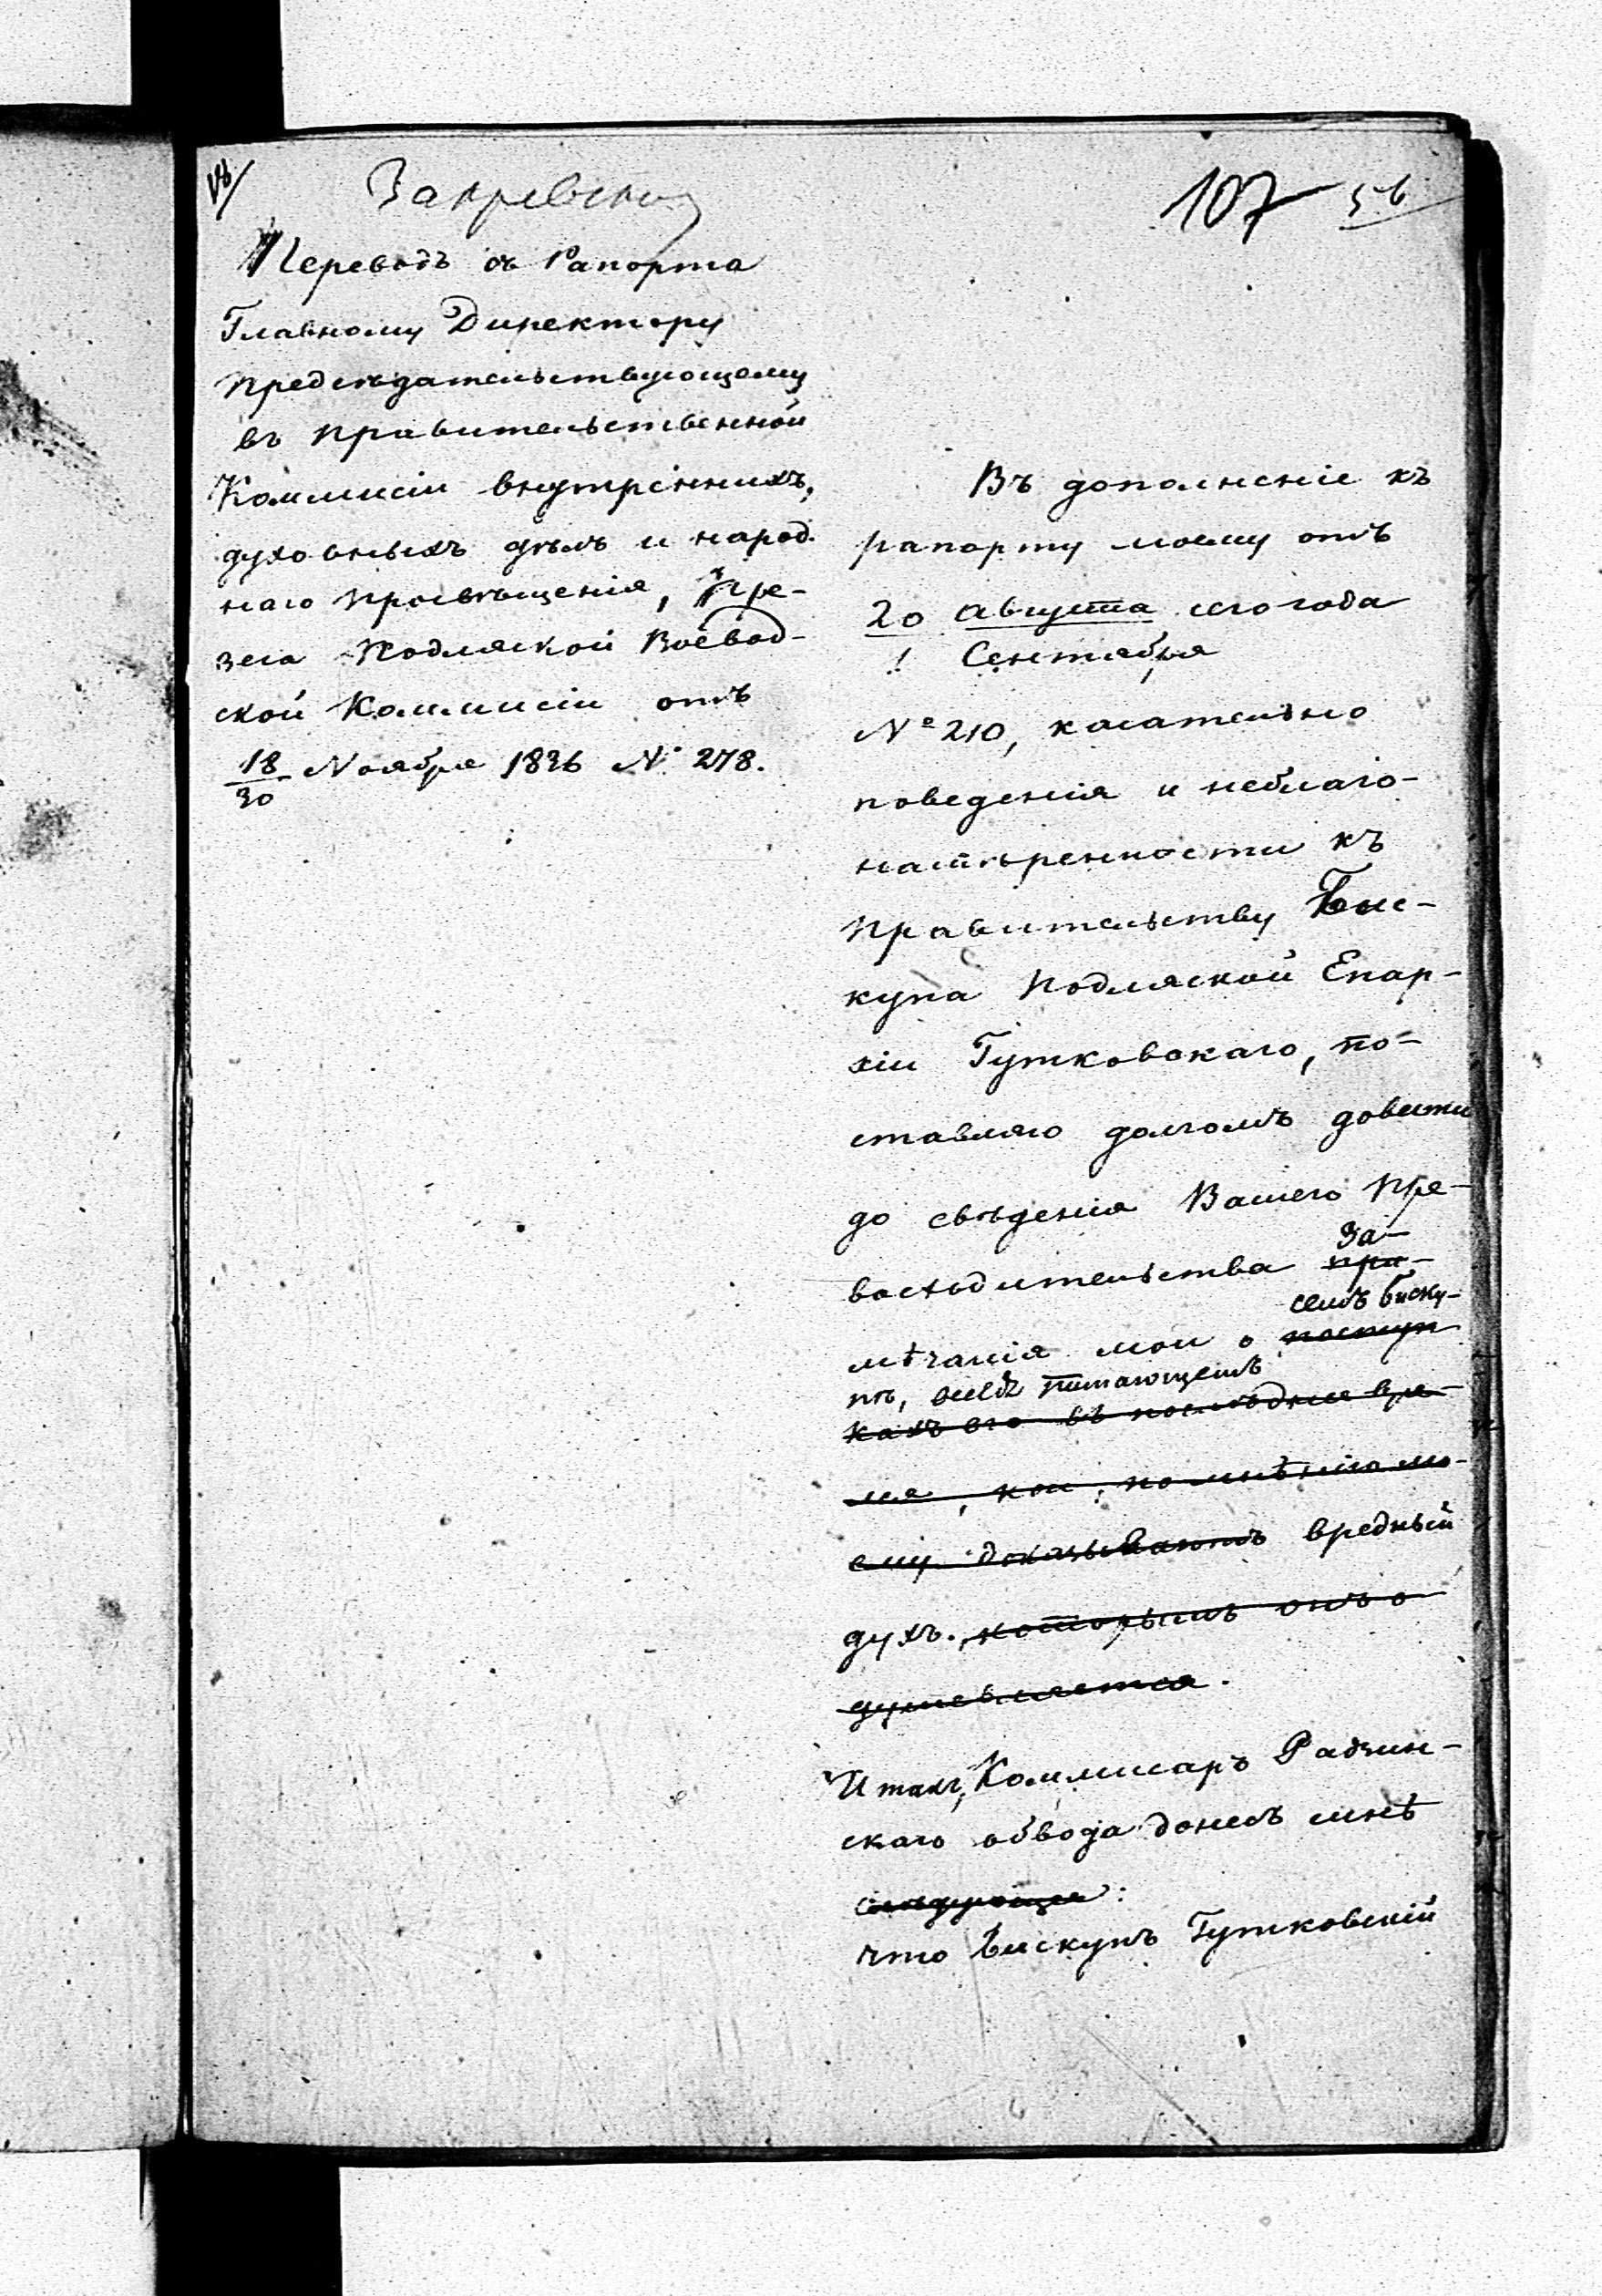 Закревский
107
Переводъ съ Рапорта
Главному Директору
предсѣдательствующему
въ Правительственной
Коммисіи внутреннихъ,
духовныхъ дѣлъ и народ
наго просвѣщенія, Пре-
зеса Подляской Воевод-
ской Коммисіи отъ
18/30 Ноября 1836 № 278.
Въ дополненіе къ
рапорту моему отъ
20 Августа сего года
1 Сентября
№ 210, касательно
поведенія и неблаго-
намѣренности къ
Правительству Бис-
купа Подляской Епар-
хіи Гутковскаго, по-
ставляю долгомъ довести
до свѣденія Вашего Пре-
за-
восходительства при-
семъ биску-
мѣчанія мои о поступ
пѣ, питающемъ
кахъ его въ последнее вре-
мя, кои, по мнѣнію мо-
ему доказываютъ вредный
духъ, которымъ онъ о
душевляется.
Итакъ, Коммисаръ Радзин-
скаго обвода донесъ мнѣ
слѣдующее:
что Бискупъ Гутковскій